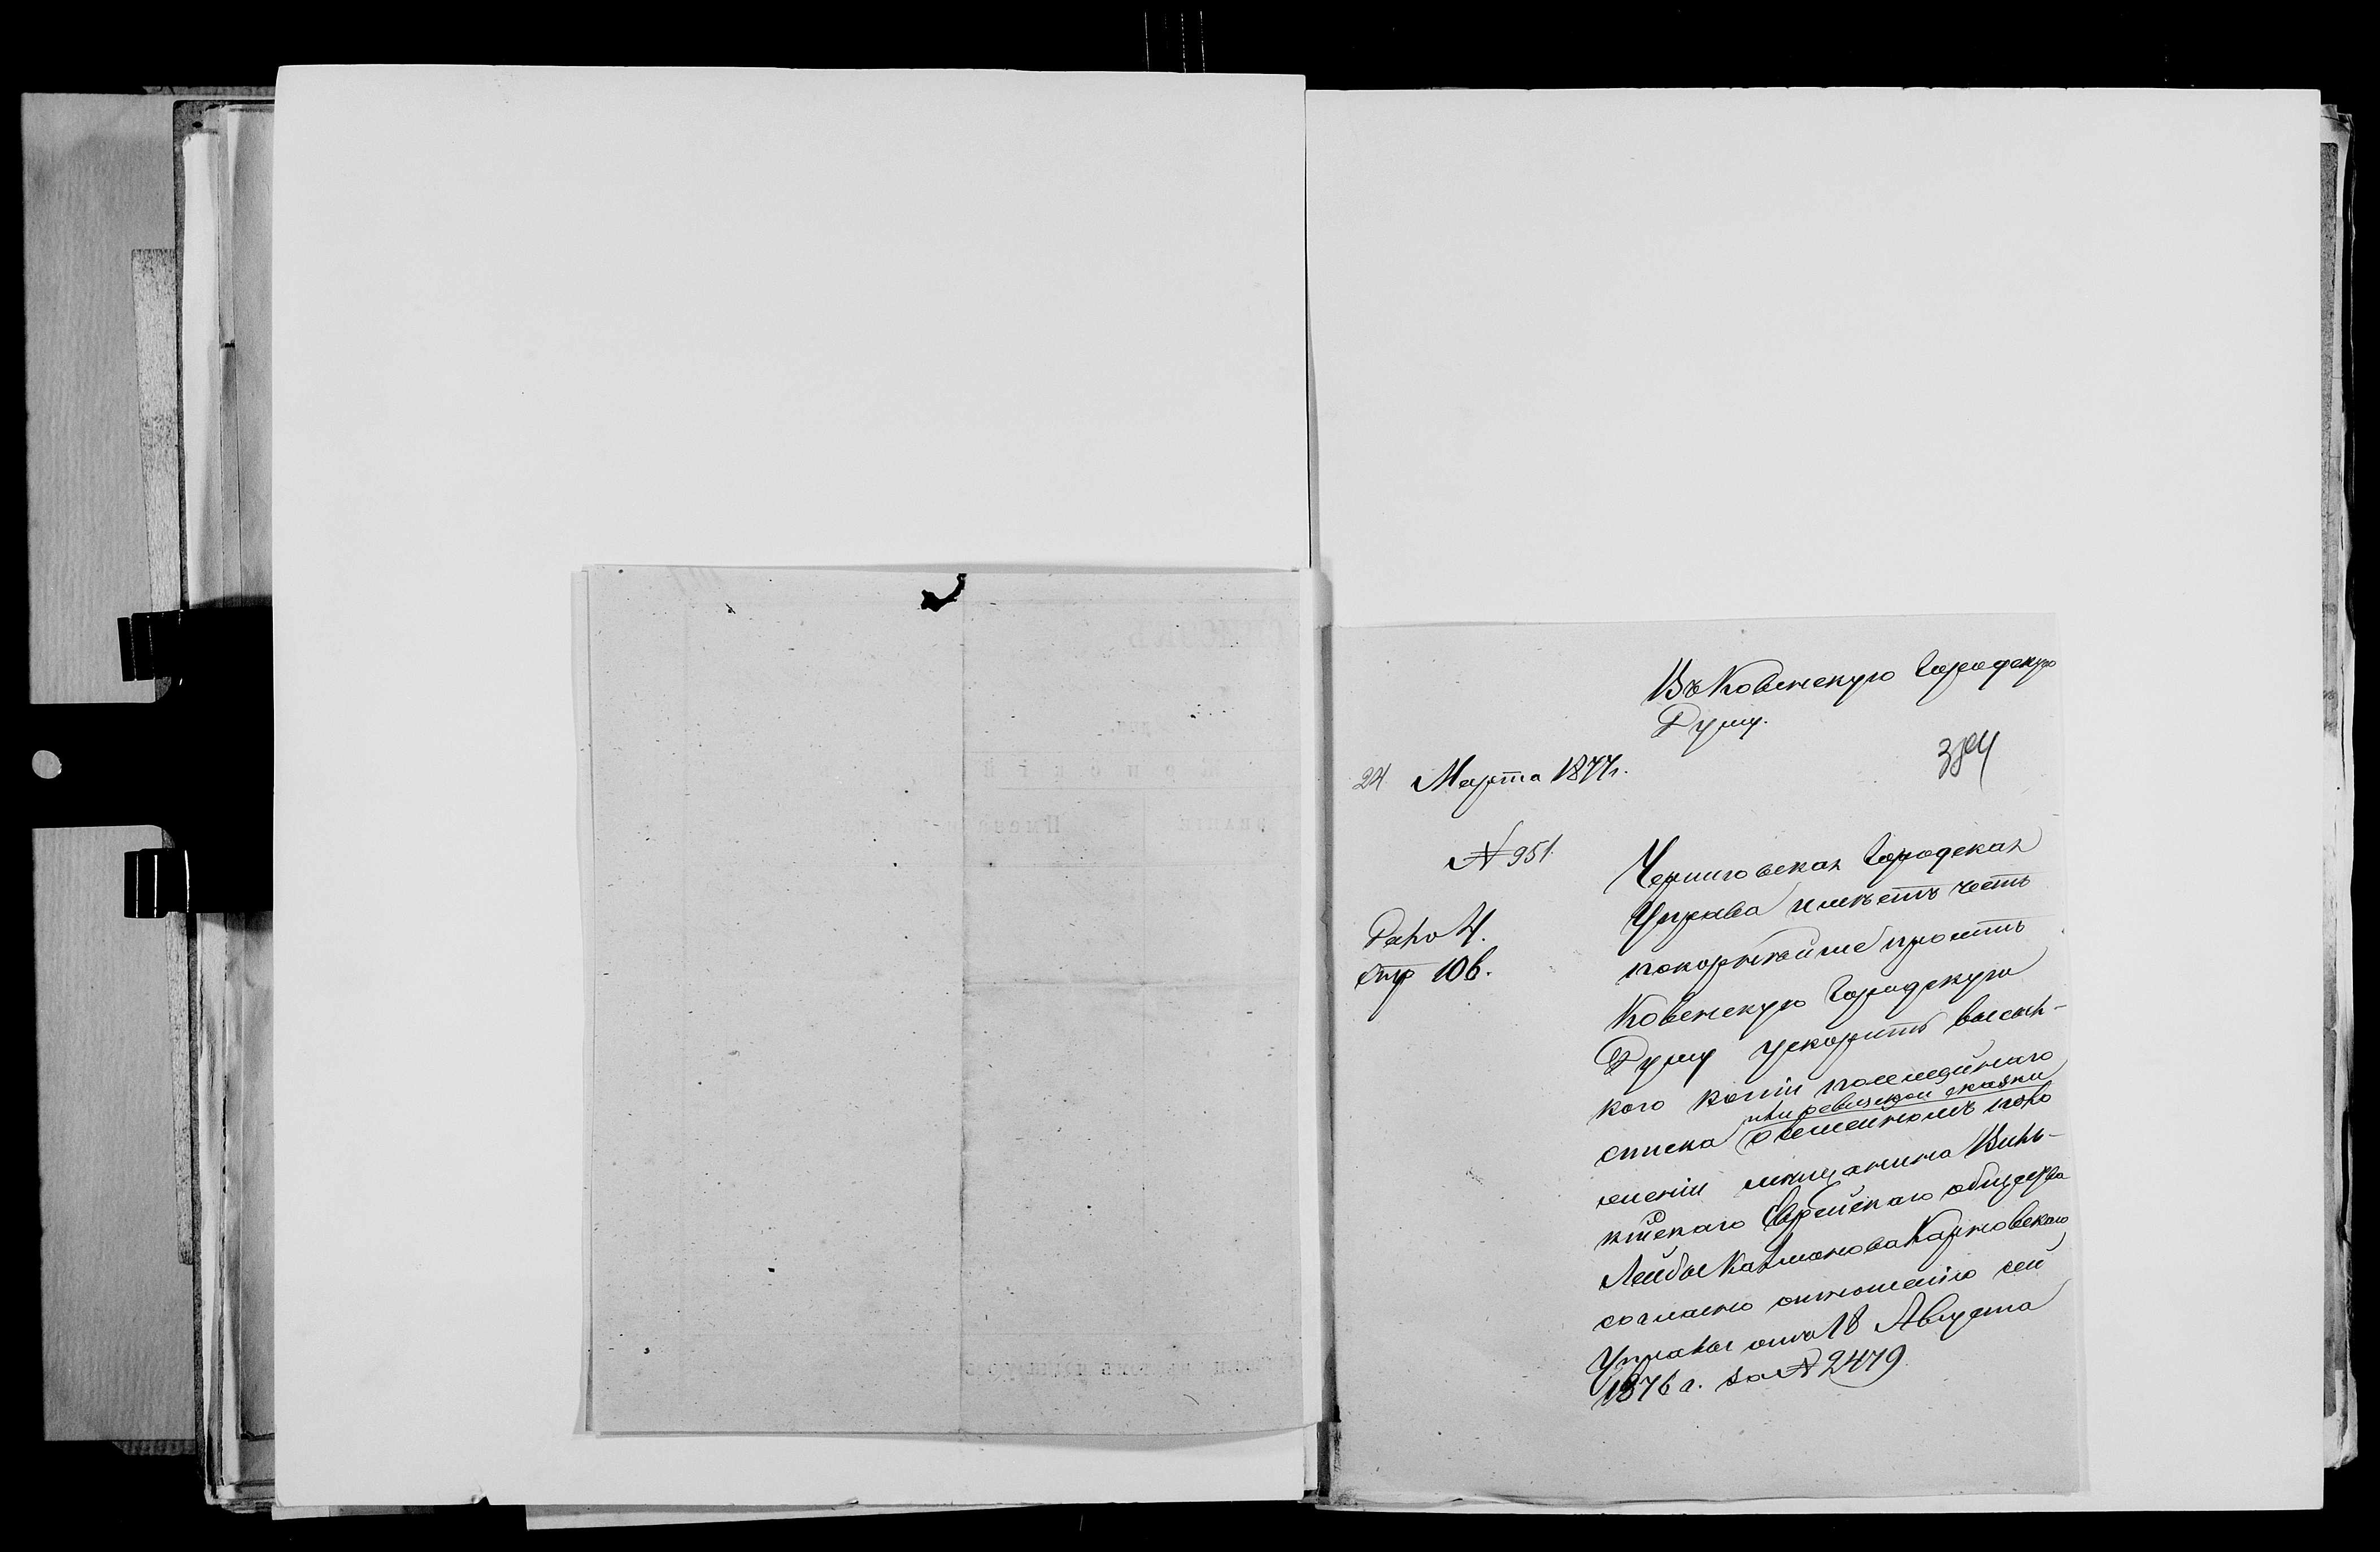 Въ Ковенскую Городскую
Думу.
384
24 Марта 1877 г.
№ 951.
Дѣло 4.
стр 106.
Черниговская Городская
Управа имѣетъ честь
покорнѣйше просить
Ковенскую Городскую
Думу ускорить высыл-
кою копіи посемейнаго
или ревизской сказки
списка о семейномъ поло
женіи мѣщанина Виль-
кійскаго Еврейскаго общества
Лейбы Калманова Карновскаго
согласно отношенію сей
Управы отъ 18 Августа
1876 г. за № 2479